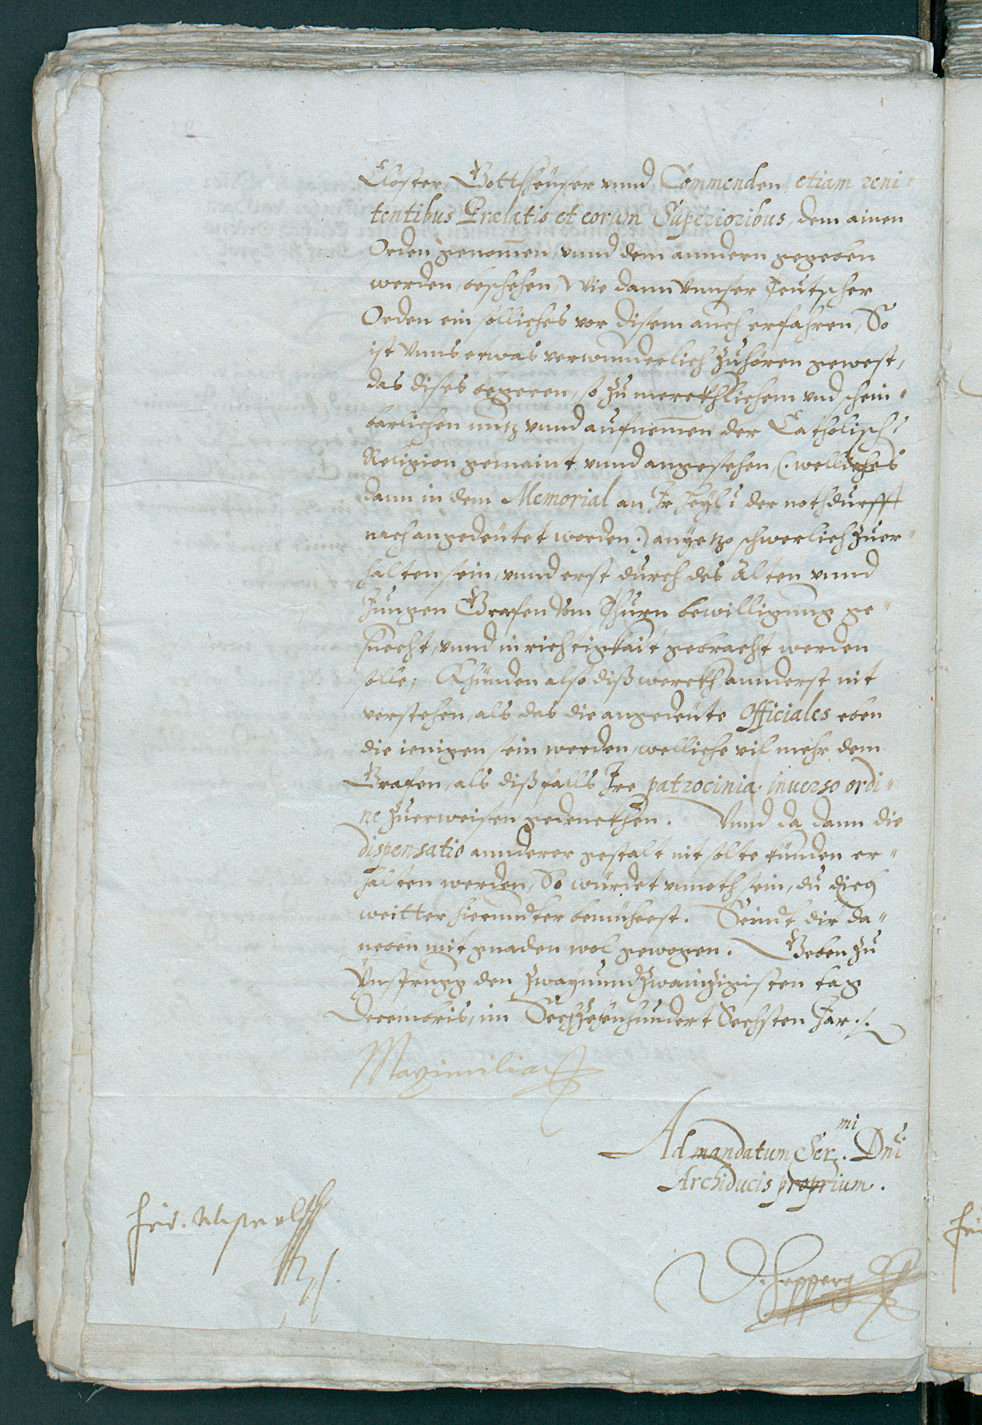 Clöster, Gottsheuser vnnd Commenden, etiam reni-
tentibus Prælatis et eorum Superioribus, dem ainen
Orden genom̄en, vnnd dem anndern gegeben
werden, beschehen, Wie dann Vnnser Teutscher
Orden ein solliches vor disem auch erfahren, So
ist Vnns etwas verwunderlich zuhören gewest,
das dises begeren, so zu merckhlichem vnd schein-
barlichen nutz vnnd aufnemen der Catholisch:
Religion gemaint vnnd angesehen, (: welliches
dann in dem Memorial an Ir Heyl: der nothdurfft
nach angedeutet worden :) anyetzo schwerlich zuer-
halten sein, vnnd erst durch des Alten vnnd
Jungen Grafen vom Thurn bewilligung ge-
suecht, vnnd in richtigkait gebracht werden
solle; Khünden also diß werckh annderst nit
verstehen, als das die angedeute Officiales eben
die ienigen sein werden, welliche vil mehr dem
Grafen, als dißfalls Ire patrocinia inuerso ordi-
ne zuerweisen gedenckhen. Vnnd da dann die
dispensatio annderer gestalt nit solte künden er-
halten werden, So würdet vnnoth sein, du dich
weitter hierundter bemühest. Seindt dir da-
neben mit gnaden wol gewogen. Geben zu
Ynsprugg den zwayundzwainzigisten tag
Decembris, im Sechzehenhundert Sechsten Jar ./.
Maximilian
Ad mandatum Ser.mi Dni
Archiducis proprium.